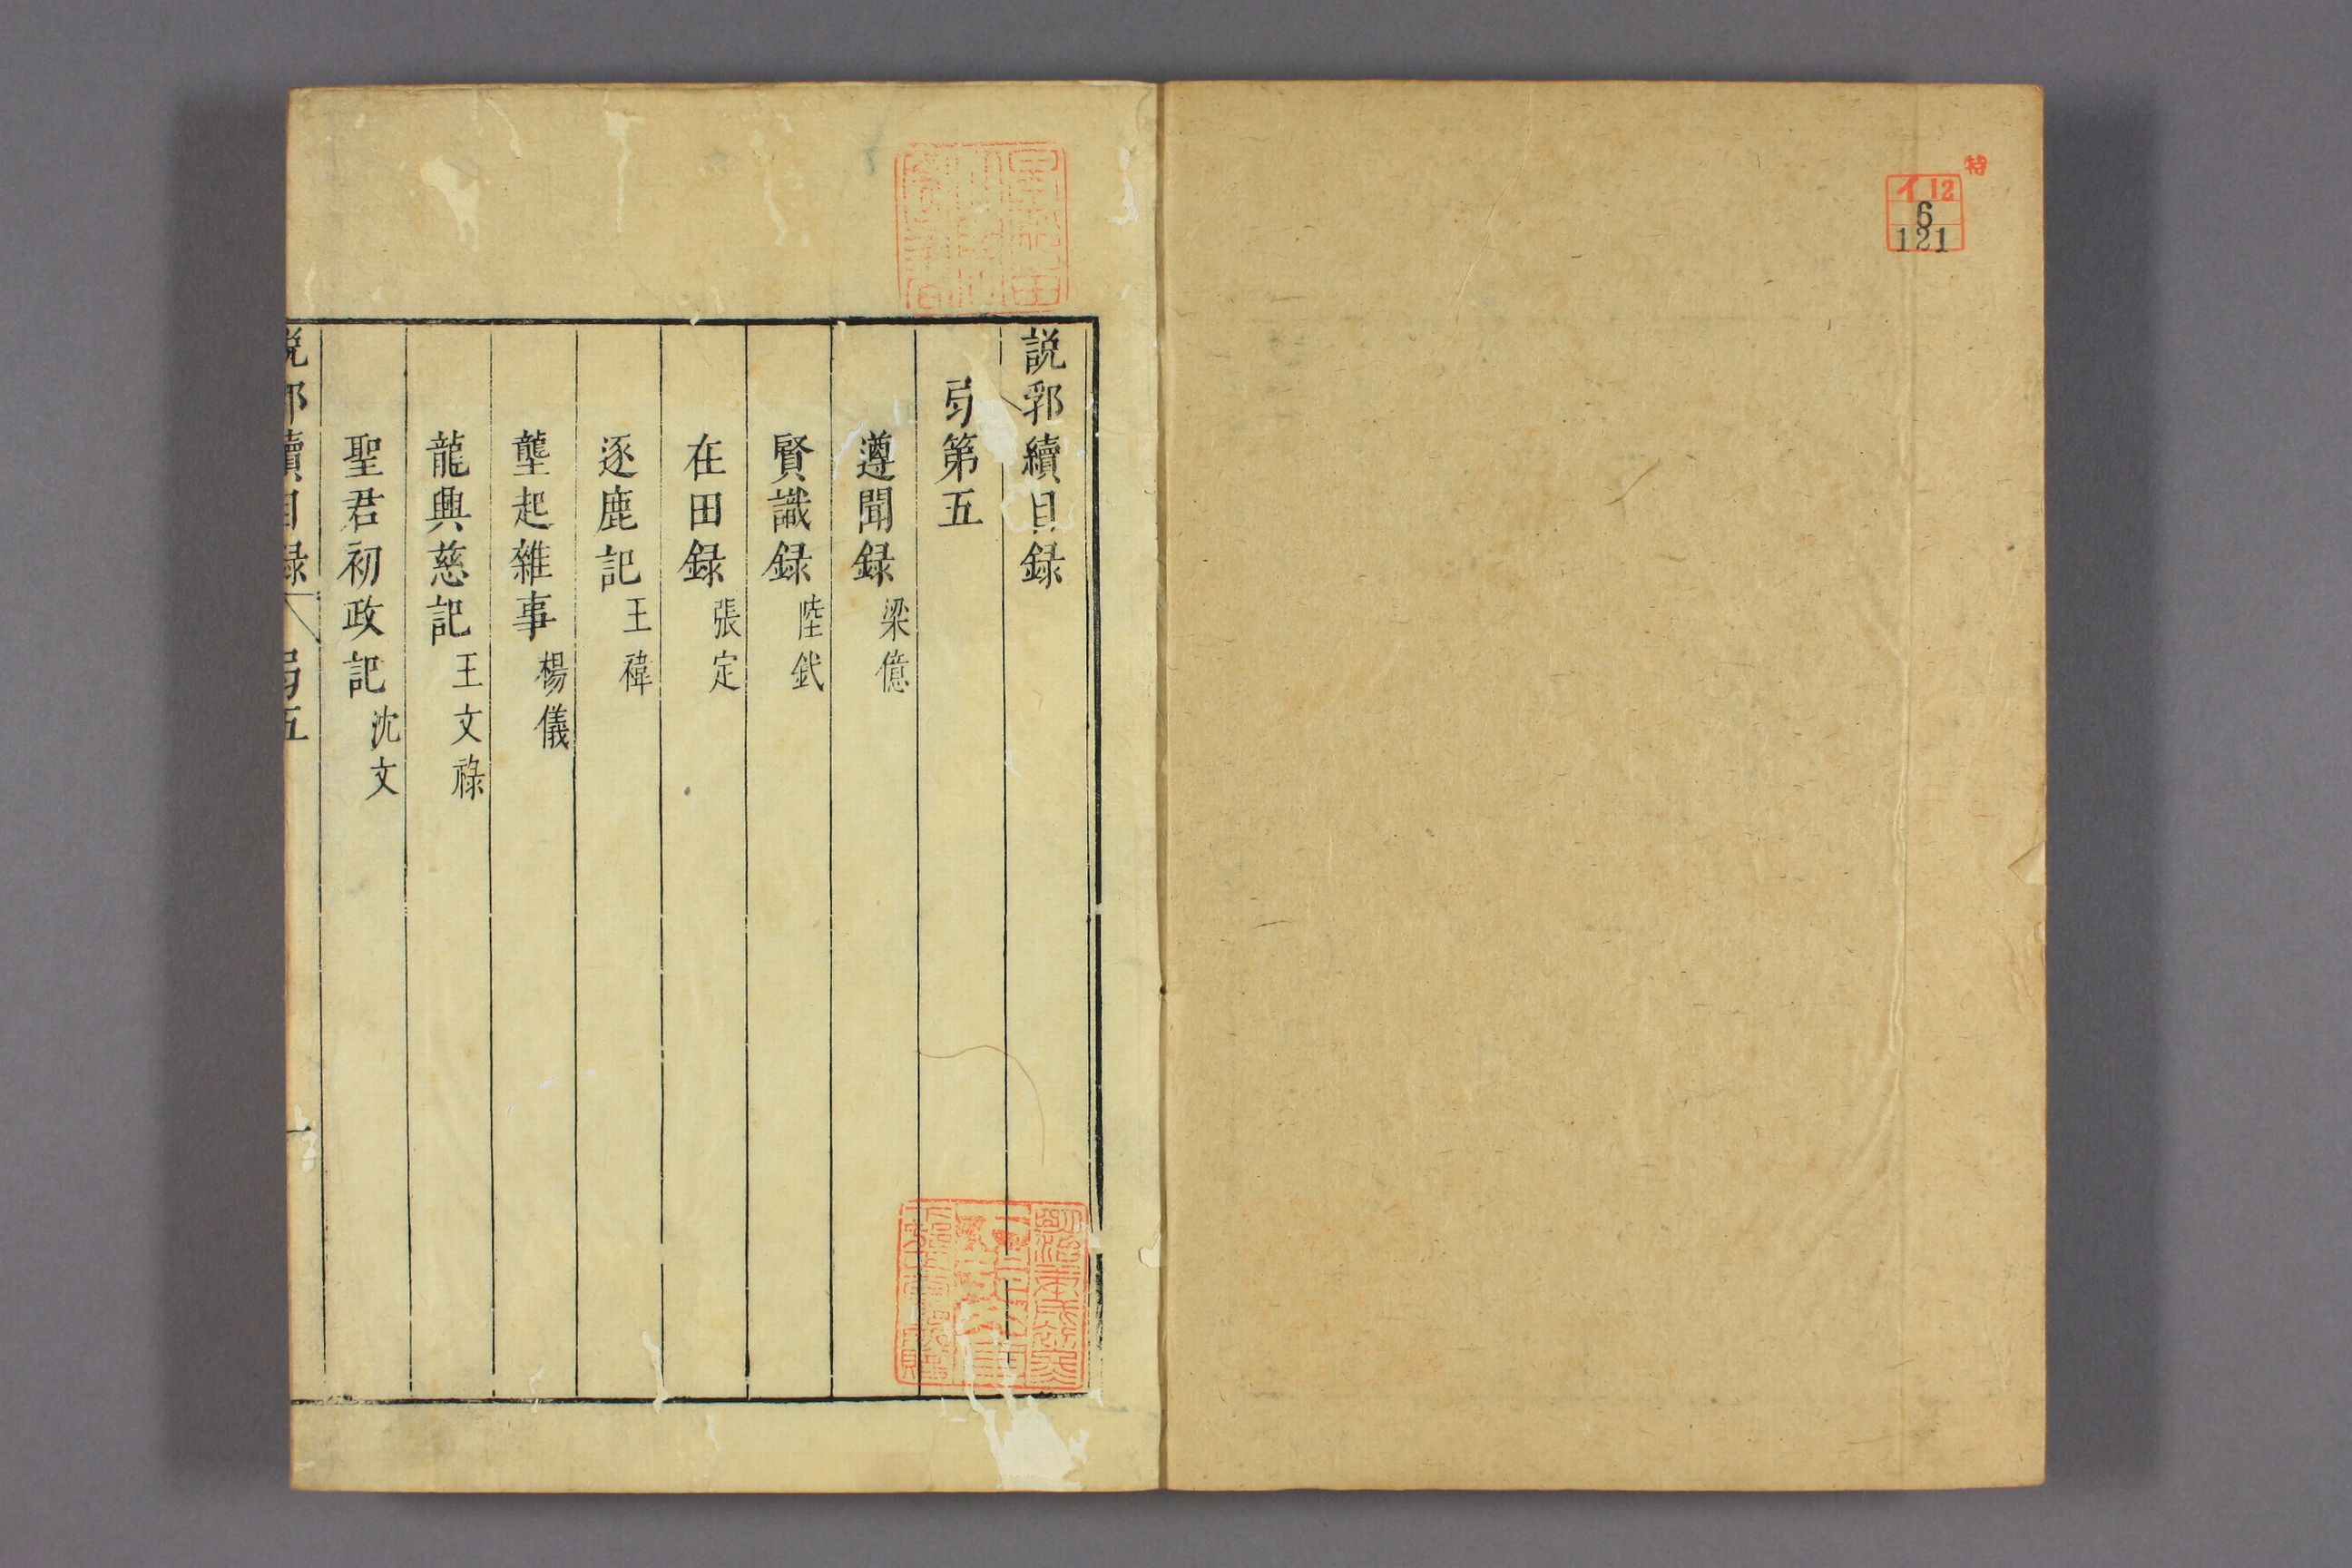 特
イ12
6
121
説郛續目録
弓第五
遵聞録 梁億
賢識録 陸釴
在田録 張定
逐鹿記 王禕
壟起雜事 楊儀
龍興慈記 王文祿
聖君初政記 沈文
説郛續目録 弓五 一